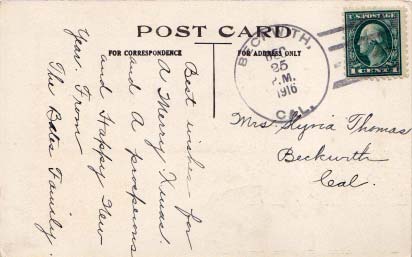 POST CARD
FOR CORRESPONDENCE
FOR ADDRESS ONLY
Best wishes for
A Merry Xmas.
and A prosperous
and Happy New
Year. From
The Bates Family.
BECKWITH,
DEC
25
M.
1916
CAL.
U.S. POSTAGE
1 CENT 1
Mrs. Thomas
Beckwith
Cal.